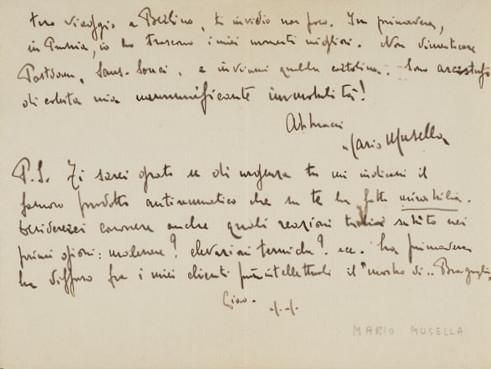 tuo viaggio a Berlino, ti invidio non poco. In primavera,
in Prussia, io ho trascorso i miei momenti migliori. Non dimenticare
Potsdam, Sans-Souci, e inviami qualche cartolina. Sono arcistufo
di codesta mia mummificante immobilità!
Abbracci
Mario Musella
P.S. Ti sarei grato se di urgenza tu mi indicassi il
famoso prodotto antireumatico che su te ha fatto mirabilia.
Desidererei conoscere anche quali reazioni subito nei
primi giorni: malessere? elevazioni termiche? ecc. La primavera
ha diffuso fra i miei clienti più intellettuali il "morbo di.. Bragaglia
Ciao.
MARIO MUSELLA